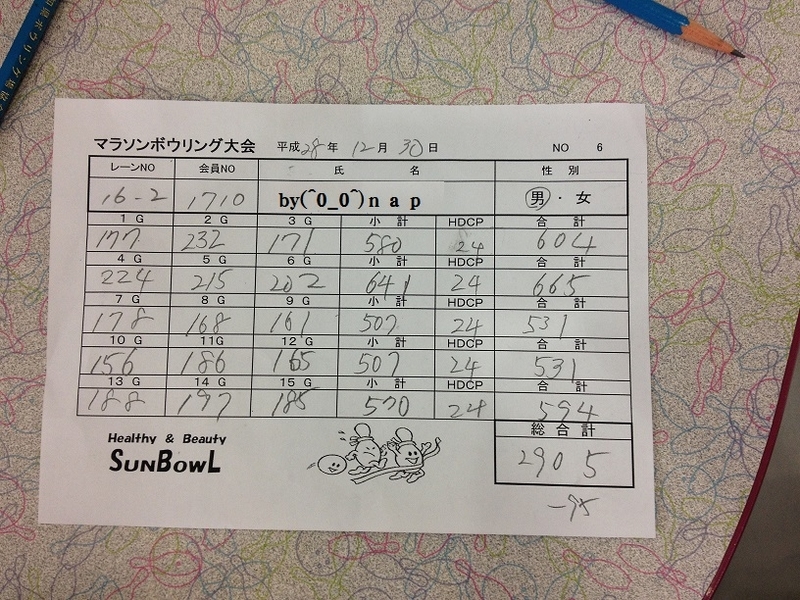 マラソンボウリング大会 平成28年 12月 30日 NO 6
レーンNO 会員NO 氏 名 性 別
16-2 1710 by(^0_0^)n a p 男・女
1 G 2 G 3 G 小 計 HDCP 合 計
177 232 171 580 24 604
4 G 5 G 6 G 小 計 HDCP 合 計
224 215 202 641 24 665
7 G 8 G 9 G 小 計 HDCP 合 計
178 168 161 507 24 531
10 G 11G 12 G 小 計 HDCP 合 計
156 186 165 507 24 531
13 G 14 G 15 G 小 計 HDCP 合 計
188 197 185 570 24 594
総 合 計
2905
-95
Healthy & Beauty
SUNBOWL